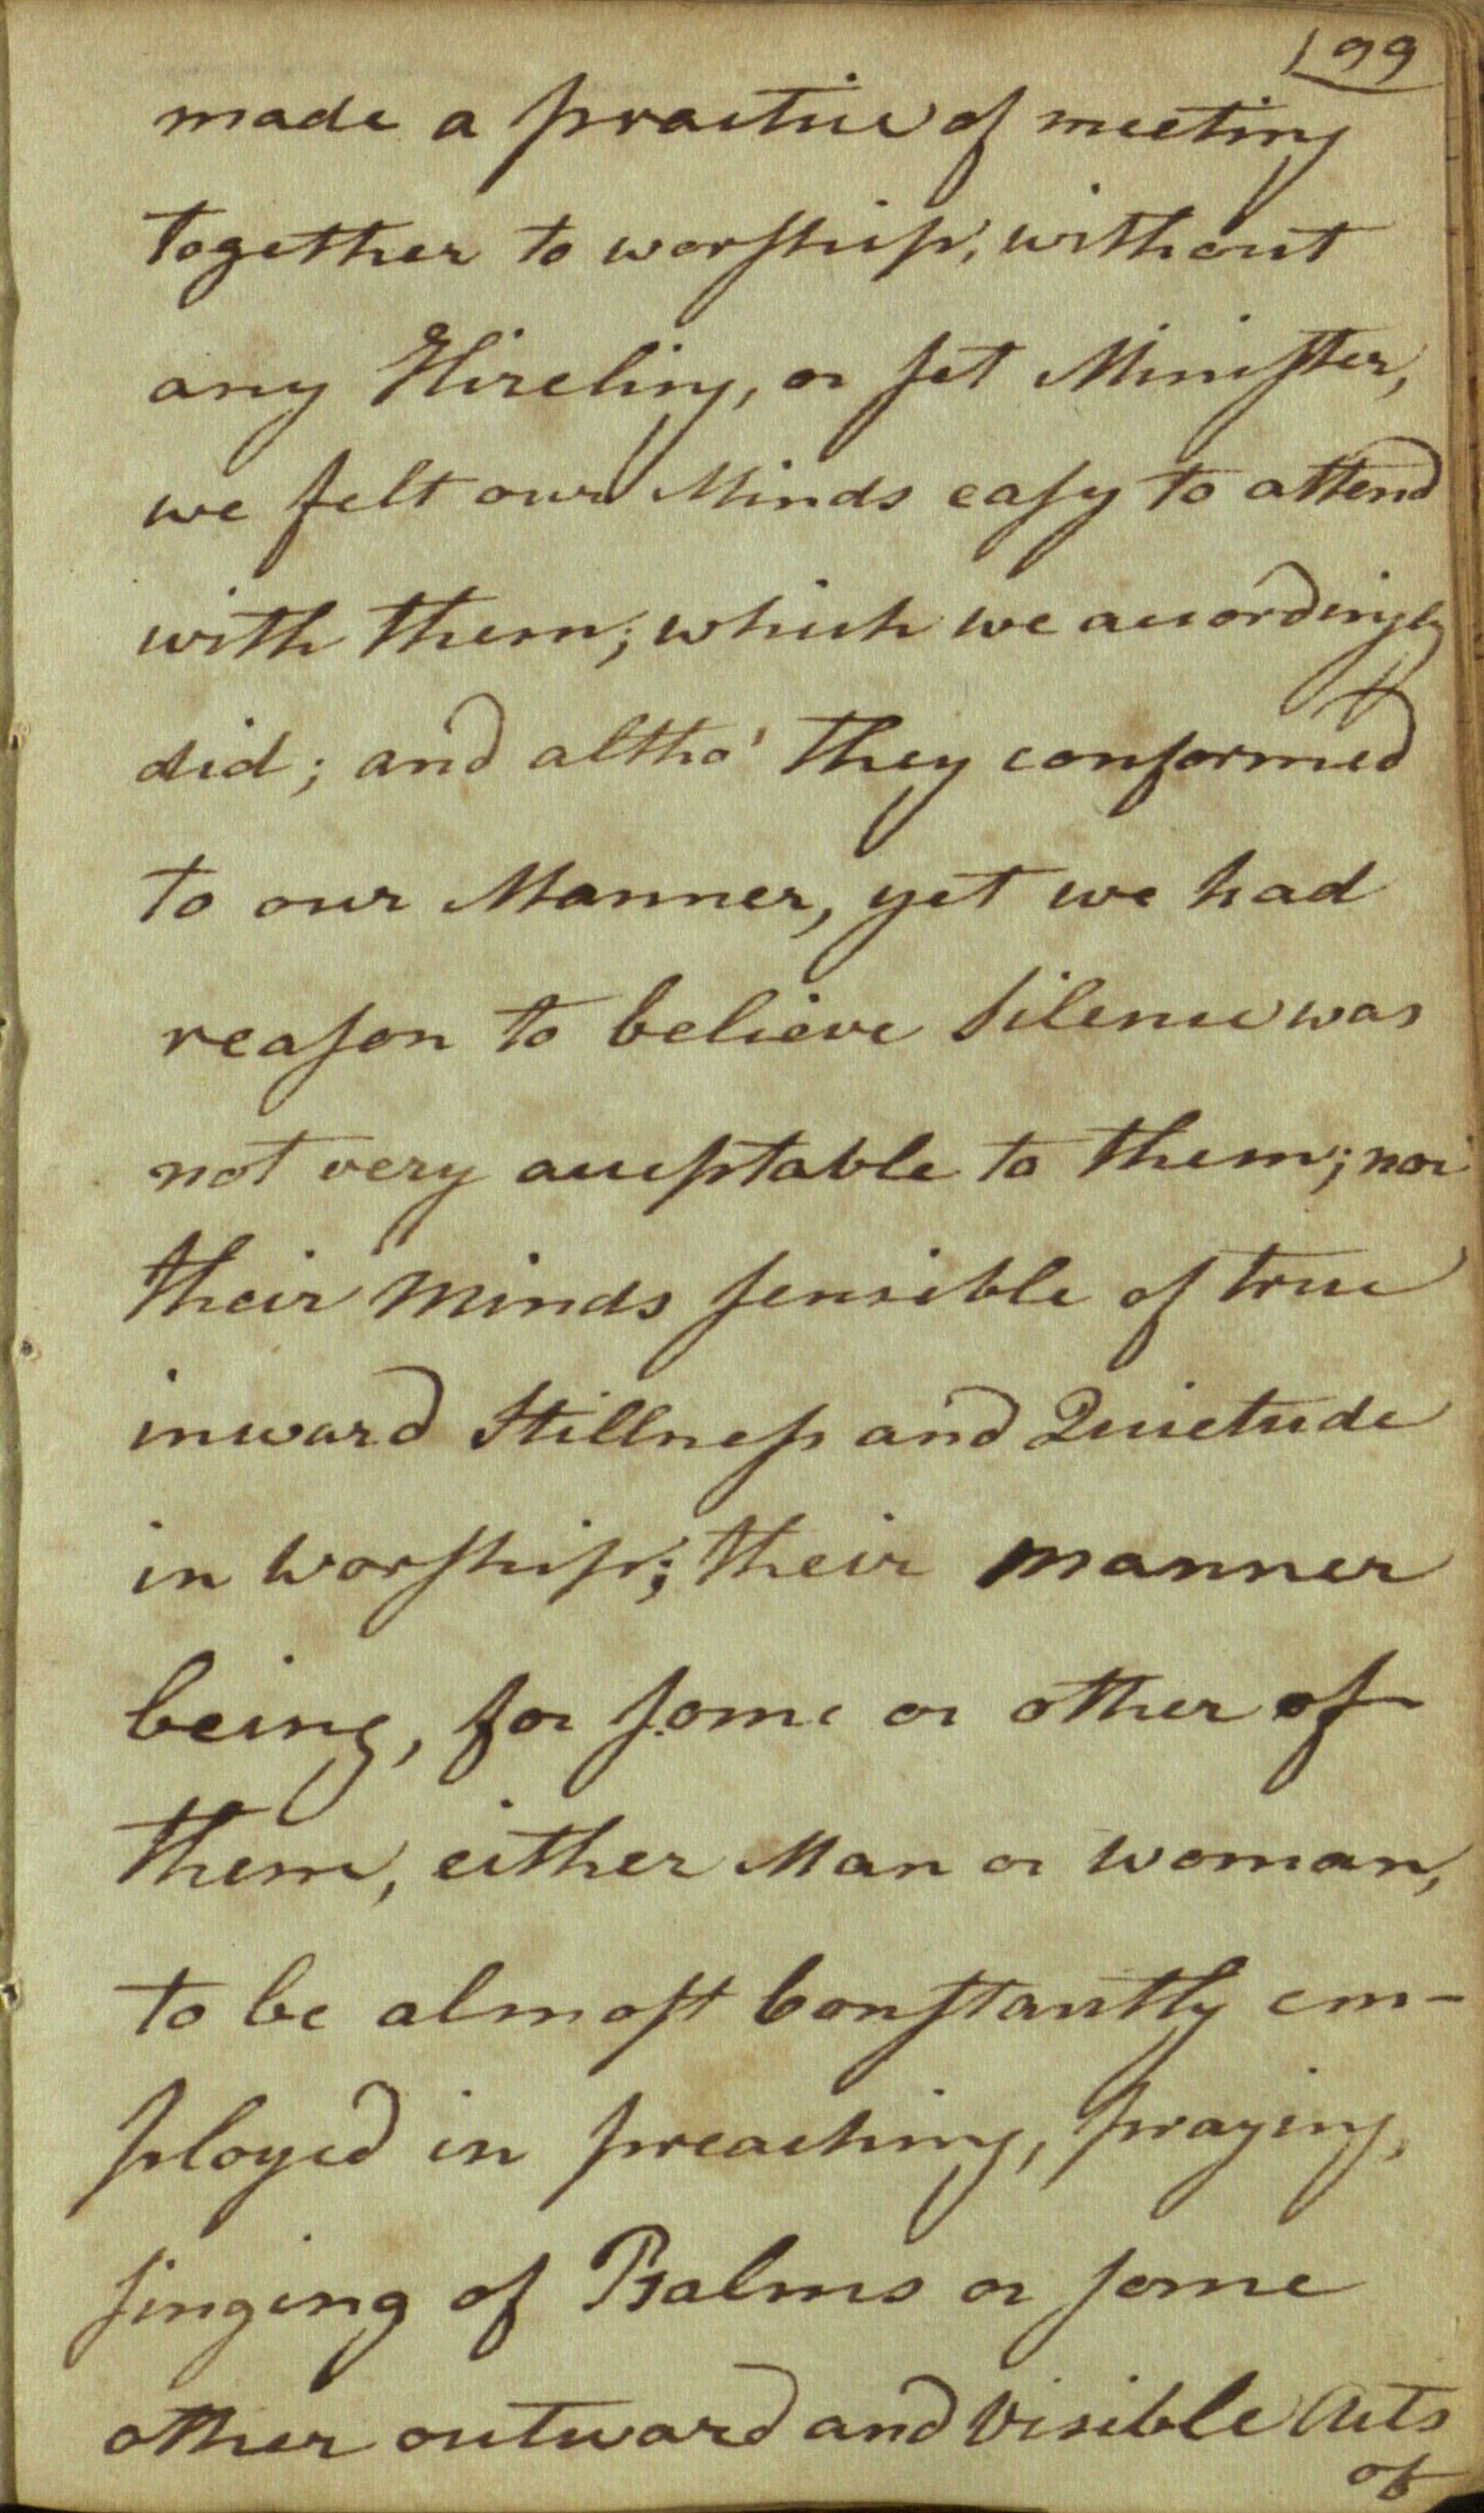 99
made a practice of meeting
together to worship, without
any Hireling, or set Minister,
we felt our Minds easy to attend
with them; which we accordingly
did; and altho' they conformed
to our Manner, yet we had
reason to believe Silence was
not very acceptable to them; nor
their Minds sensible of true
inward Stillness and Quietude
in worship; their manner
being, for some or other of
them, either Man or woman,
to be almost Constantly em-
ployed in preaching, praying,
singing of Psalms or some
other outward and Visible Acts
of